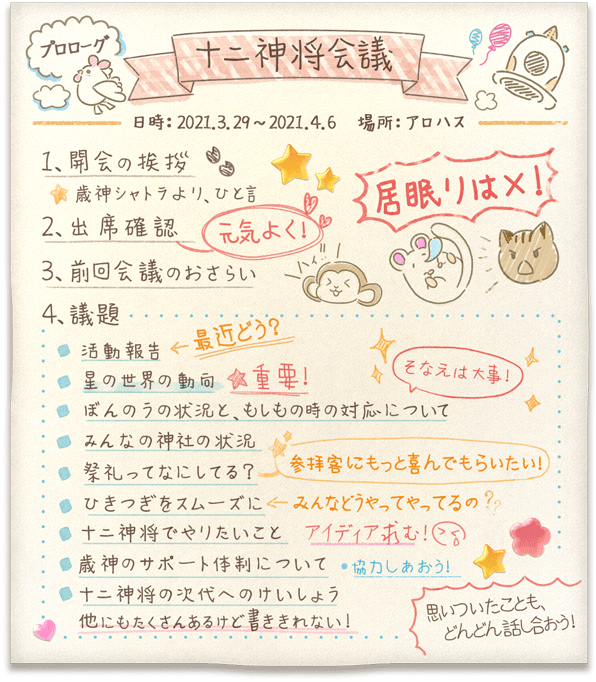 プロローグ
十二神将会議
日時：2021.3.29～2021.4.6　場所：アロハス
1、開会の挨拶
歳神シャトラより、ひと言
居眠りは×!
2、出席確認
元気よく!
ハイ!!
3、前回会議のおさらい
4、議題
活動報告
最近どう?
星の世界の動向
重要!
そなえは大事!
ぼんのうの状況と、もしもの時の対応について
みんなの神社の状況
祭礼ってなにしてる?
参拝客にもっと喜んでもらいたい!
ひきつぎをスムーズに
みんなどうやってやってるの??
十二神将でやりたいこと
アイディア求む!
歳神のサポート体制について
•協力しあおう!
十二神将の次代へのけいしょう
他にもたくさんあるけど書ききれない!
思いついたことも、
どんどん話し合おう!